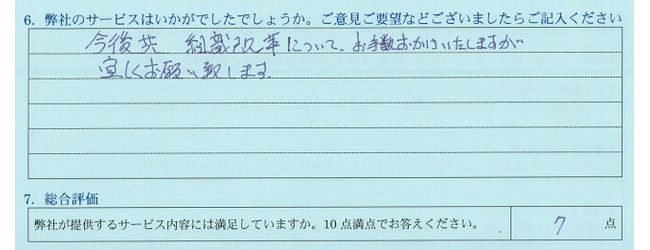 6. 弊社のサービスはいかがでしたでしょうか。ご意見ご要望などございましたらご記入ください
今後共 組織改革について、お手数おかけいたしますが
宜しくお願い致します
7. 総合評価
弊社が提供するサービス内容には満足していますか。10点満点でお答えください。 7 点